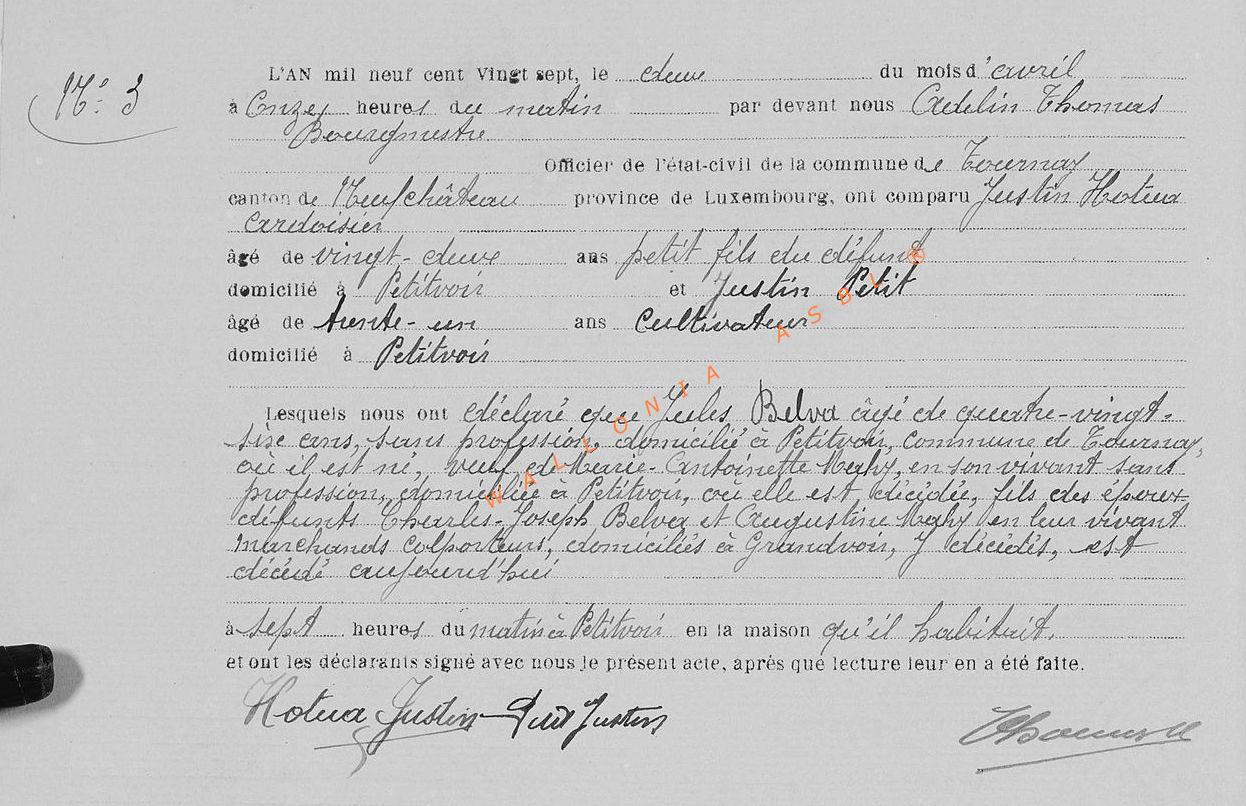 N° 3
L'AN mil neuf cent Vingt sept, le deux du mois d'avril
à onze heures du matin par devant nous Adelin Thomas
Bourgmestre
Officier de l'état-civil de la commune de Tournay
canton de Neufchâteau province de Luxembourg, ont comparu Justin Hotua
ardoisier
âgé de vingt-deux ans petit fils du défunt
domicilié à Petitvoir et Justin Petit
âgé de trente-un ans Cultivateur
domicilié à Petitvoir
Lesquels nous ont déclaré que Jules Belva âgé de quatre-vingt-
six ans, sans profession, domicilié à Petitvoir, commune de Tournay,
où il est né, veuf de Marie-Antoinette Mahy, en son vivant sans
profession, domiciliée à Petitvoir, où elle est décédée, fils des époux
défunts Charles-Joseph Belva et Augustine Mahy en leur vivant
marchands colporteurs, domiciliés à Grandvoir, y décédés, est
décédé aujourd'hui
à sept heures du matin à Petitvoir en la maison qu'il habitait.
et ont les déclarants signé avec nous le présent acte, après que lecture leur en a été faite.
Hotua Justin Petit Justin
WALLONIA ASBL ®